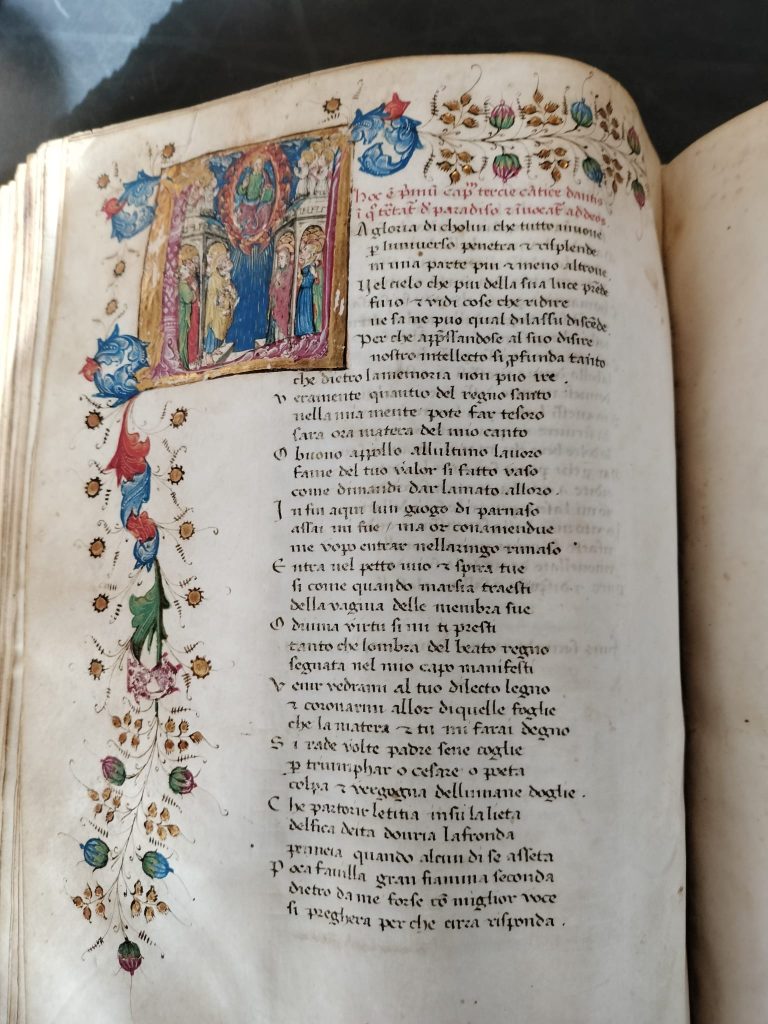 hoc ē p̄mū capͫ tercie cātice dantis
ī q̊ tētat d̵ paradiso ⁊ īuocat ad deos
A gloria di cholui che tutto muoue
ꝑ luniuerso penetra ⁊ risplende
in una parte piu ⁊ meno altroue
Nel cielo che piu della sua luce prēde
fu io ⁊ vidi cose che ridire
ne sa ne puo qual dilassu discēde
Per che appͤssandose al suo disire
nostro intellecto si ꝓfunda tanto
che dietro la memoria non puo ire .
V eramente quanto del regno santo
nella mia mente pote far tesoro
sara ora matera del mio canto
O buono appollo allultimo lauoro
fame del tuo valor si fatto vaso
come dimandi dar lamato alloro .
I n fin a qui lun giogo di parnaso
assai mi fue / ma or con amendue
me vopo entrar nellaringo rimaso
E ntra nel petto mio ⁊ spira tue
si come quando marsia traesti
della vagina delle membra sue
O diuina virtu si mi ti presti
tanto che lombra del beato regno
segnata nel mio capo manifesti
V enir vedrami al tuo dilecto legno
⁊ coronarmi allor di quelle foglie
che la matera ⁊ tu mi farai degno
S i rade volte padre sene coglie
ꝑ triumphar o cesare o poeta
colpa ⁊ vergogna dellumane doglie .
C he partorir letitia in su la lieta
delfica deita douria la fronda
peneia quando alcun di se asseta
P oca fauilla gran fiamma seconda
dietro da me forse cō miglior voce
si preghera per che cirra risponda .